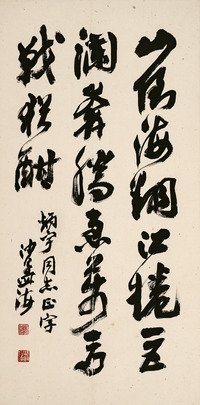 山倒海翻江捲巨
瀾奔騰急萬馬
戰猶酣
炳宇同志正字
沙孟海